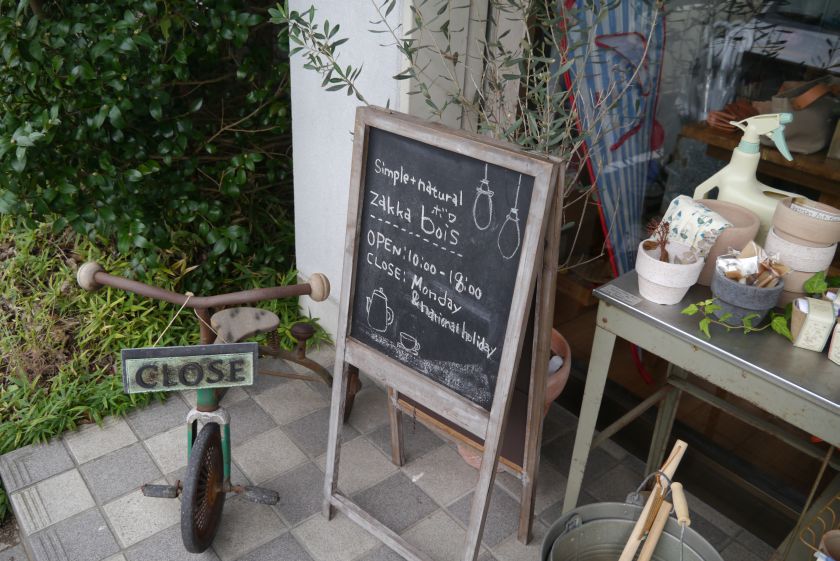 Simple+natural
ボワ
zakka bois
OPEN: 10:00-18:00
CLOSE: Monday
& national holiday
CLOSE